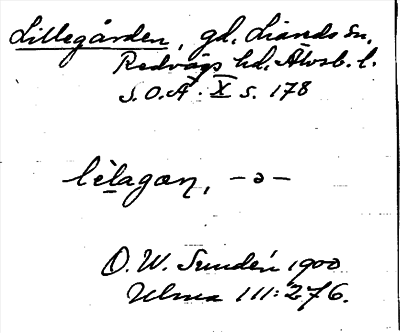 Lillegården, gd, Liareds sn,
Redvägs hd, Älvsb. l.
S.O.Ä. X s. 178
lèlagaɳ, –ə–
O.W. Sundén 1900
Ulma 111:276.